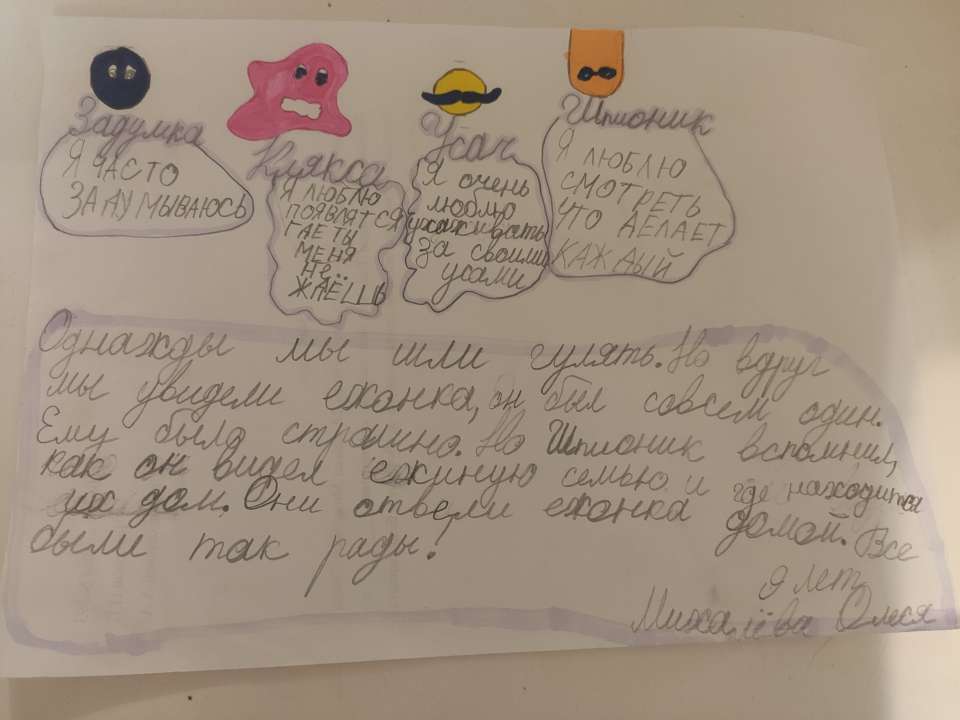 Задумка
Я ЧАСТО
ЗАДУМЫВАЮСЬ
Клякса
Я ЛЮБЛЮ
ПОЯВЛЯТСЯ
ГДЕ ТЫ
МЕНЯ
НЕ
ЖДЁШЬ
Усач
Я очень
люблю
ухаживать
за своими
усами
Шпионик
Я ЛЮБЛЮ
СМОТРЕТЬ
ЧТО ДЕЛАЕТ
КАЖДЫЙ
Однажды мы шли гулять. Но вдруг
мы увидели ежонка, он был совсем один.
Ему было страшно. Но Шпионик вспомнил,
как он видел ежиную семью и где находится
их дом. Они отвели ежонка домой. Все
были так рады!
9 лет
Михалёва Олеся